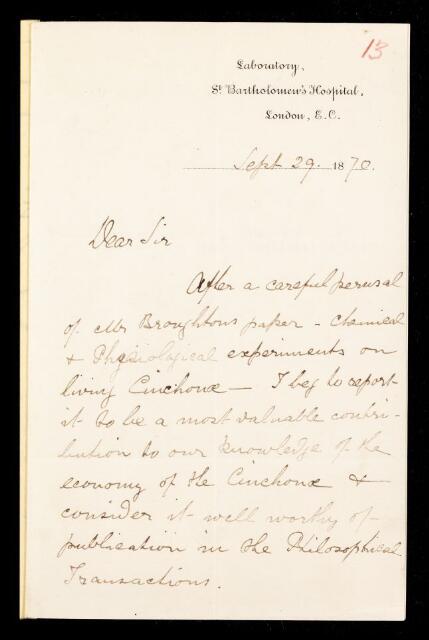 13
Laboratory,
St Bartholomew's Hospital,
London, E.C.
Sept 29. 1870.
Dear Sir
After a careful perusal
of Mr Broughtons paper - Chemical
& Physiological experiments on
living Cinchonæ — I beg to report
it to be a most valuable contri-
bution to our knowledge of the
economy of the Cinchonæ &
consider it well worthy of
publication in the Philosophical
Transactions.